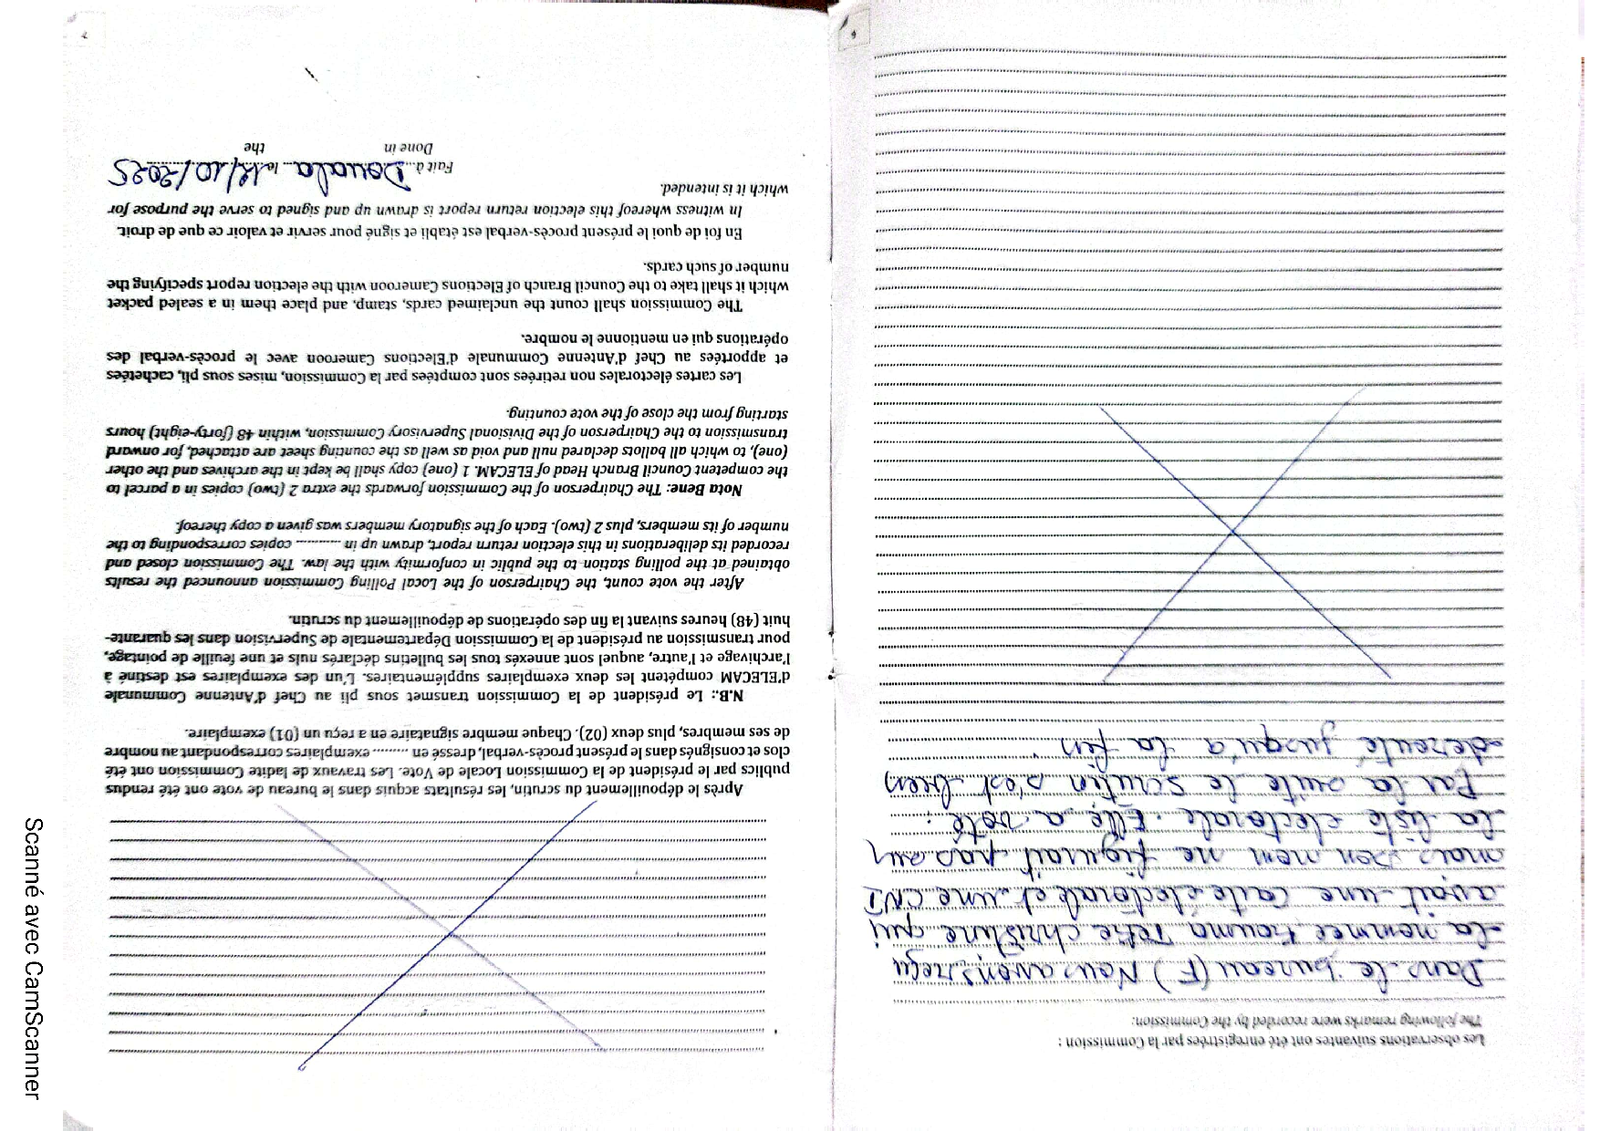 6
Les observations suivantes ont été enregistrées par la Commission :
The following remarks were recorded by the Commission:
Dans le bureau (F) Nous avons reçu
la nommée Kouma Tette christine qui
avait une carte électorale et une CNI
mais son nom ne figurait pas sur
la liste électorale. Elle a voté :
Par la suite le scrutin s'est bien
déroulé jusqu'à la fin.
7
Après le dépouillement du scrutin, les résultats acquis dans le bureau de vote ont été rendus
publics par le président de la Commission Locale de Vote. Les travaux de ladite Commission ont été
clos et consignés dans le présent procès-verbal, dressé en ......... exemplaires correspondant au nombre
de ses membres, plus deux (02). Chaque membre signataire en a reçu un (01) exemplaire.
N.B.: Le président de la Commission transmet sous pli au Chef d'Antenne Communale
d'ELECAM compétent les deux exemplaires supplémentaires. L'un des exemplaires est destiné à
l'archivage et l'autre, auquel sont annexés tous les bulletins déclarés nuls et une feuille de pointage,
pour transmission au président de la Commission Départementale de Supervision dans les quarante-
huit (48) heures suivant la fin des opérations de dépouillement du scrutin.
After the vote count, the Chairperson of the Local Polling Commission announced the results
obtained at the polling station to the public in conformity with the law. The Commission closed and
recorded its deliberations in this election return report, drawn up in ........... copies corresponding to the
number of its members, plus 2 (two). Each of the signatory members was given a copy thereof.
Nota Bene: The Chairperson of the Commission forwards the extra 2 (two) copies in a parcel to
the competent Council Branch Head of ELECAM. 1 (one) copy shall be kept in the archives and the other
(one), to which all ballots declared null and void as well as the counting sheet are attached, for onward
transmission to the Chairperson of the Divisional Supervisory Commission, within 48 (forty-eight) hours
starting from the close of the vote counting.
Les cartes électorales non retirées sont comptées par la Commission, mises sous pli, cachetées
et apportées au Chef d'Antenne Communale d'Elections Cameroon avec le procès-verbal des
opérations qui en mentionne le nombre.
The Commission shall count the unclaimed cards, stamp, and place them in a sealed packet
which it shall take to the Council Branch of Elections Cameroon with the election report specifying the
number of such cards.
En foi de quoi le présent procès-verbal est établi et signé pour servir et valoir ce que de droit.
In witness whereof this election return report is drawn up and signed to serve the purpose for
which it is intended.
Fait à Douala le 12/10/2025
Done in the
Scanné avec CamScanner